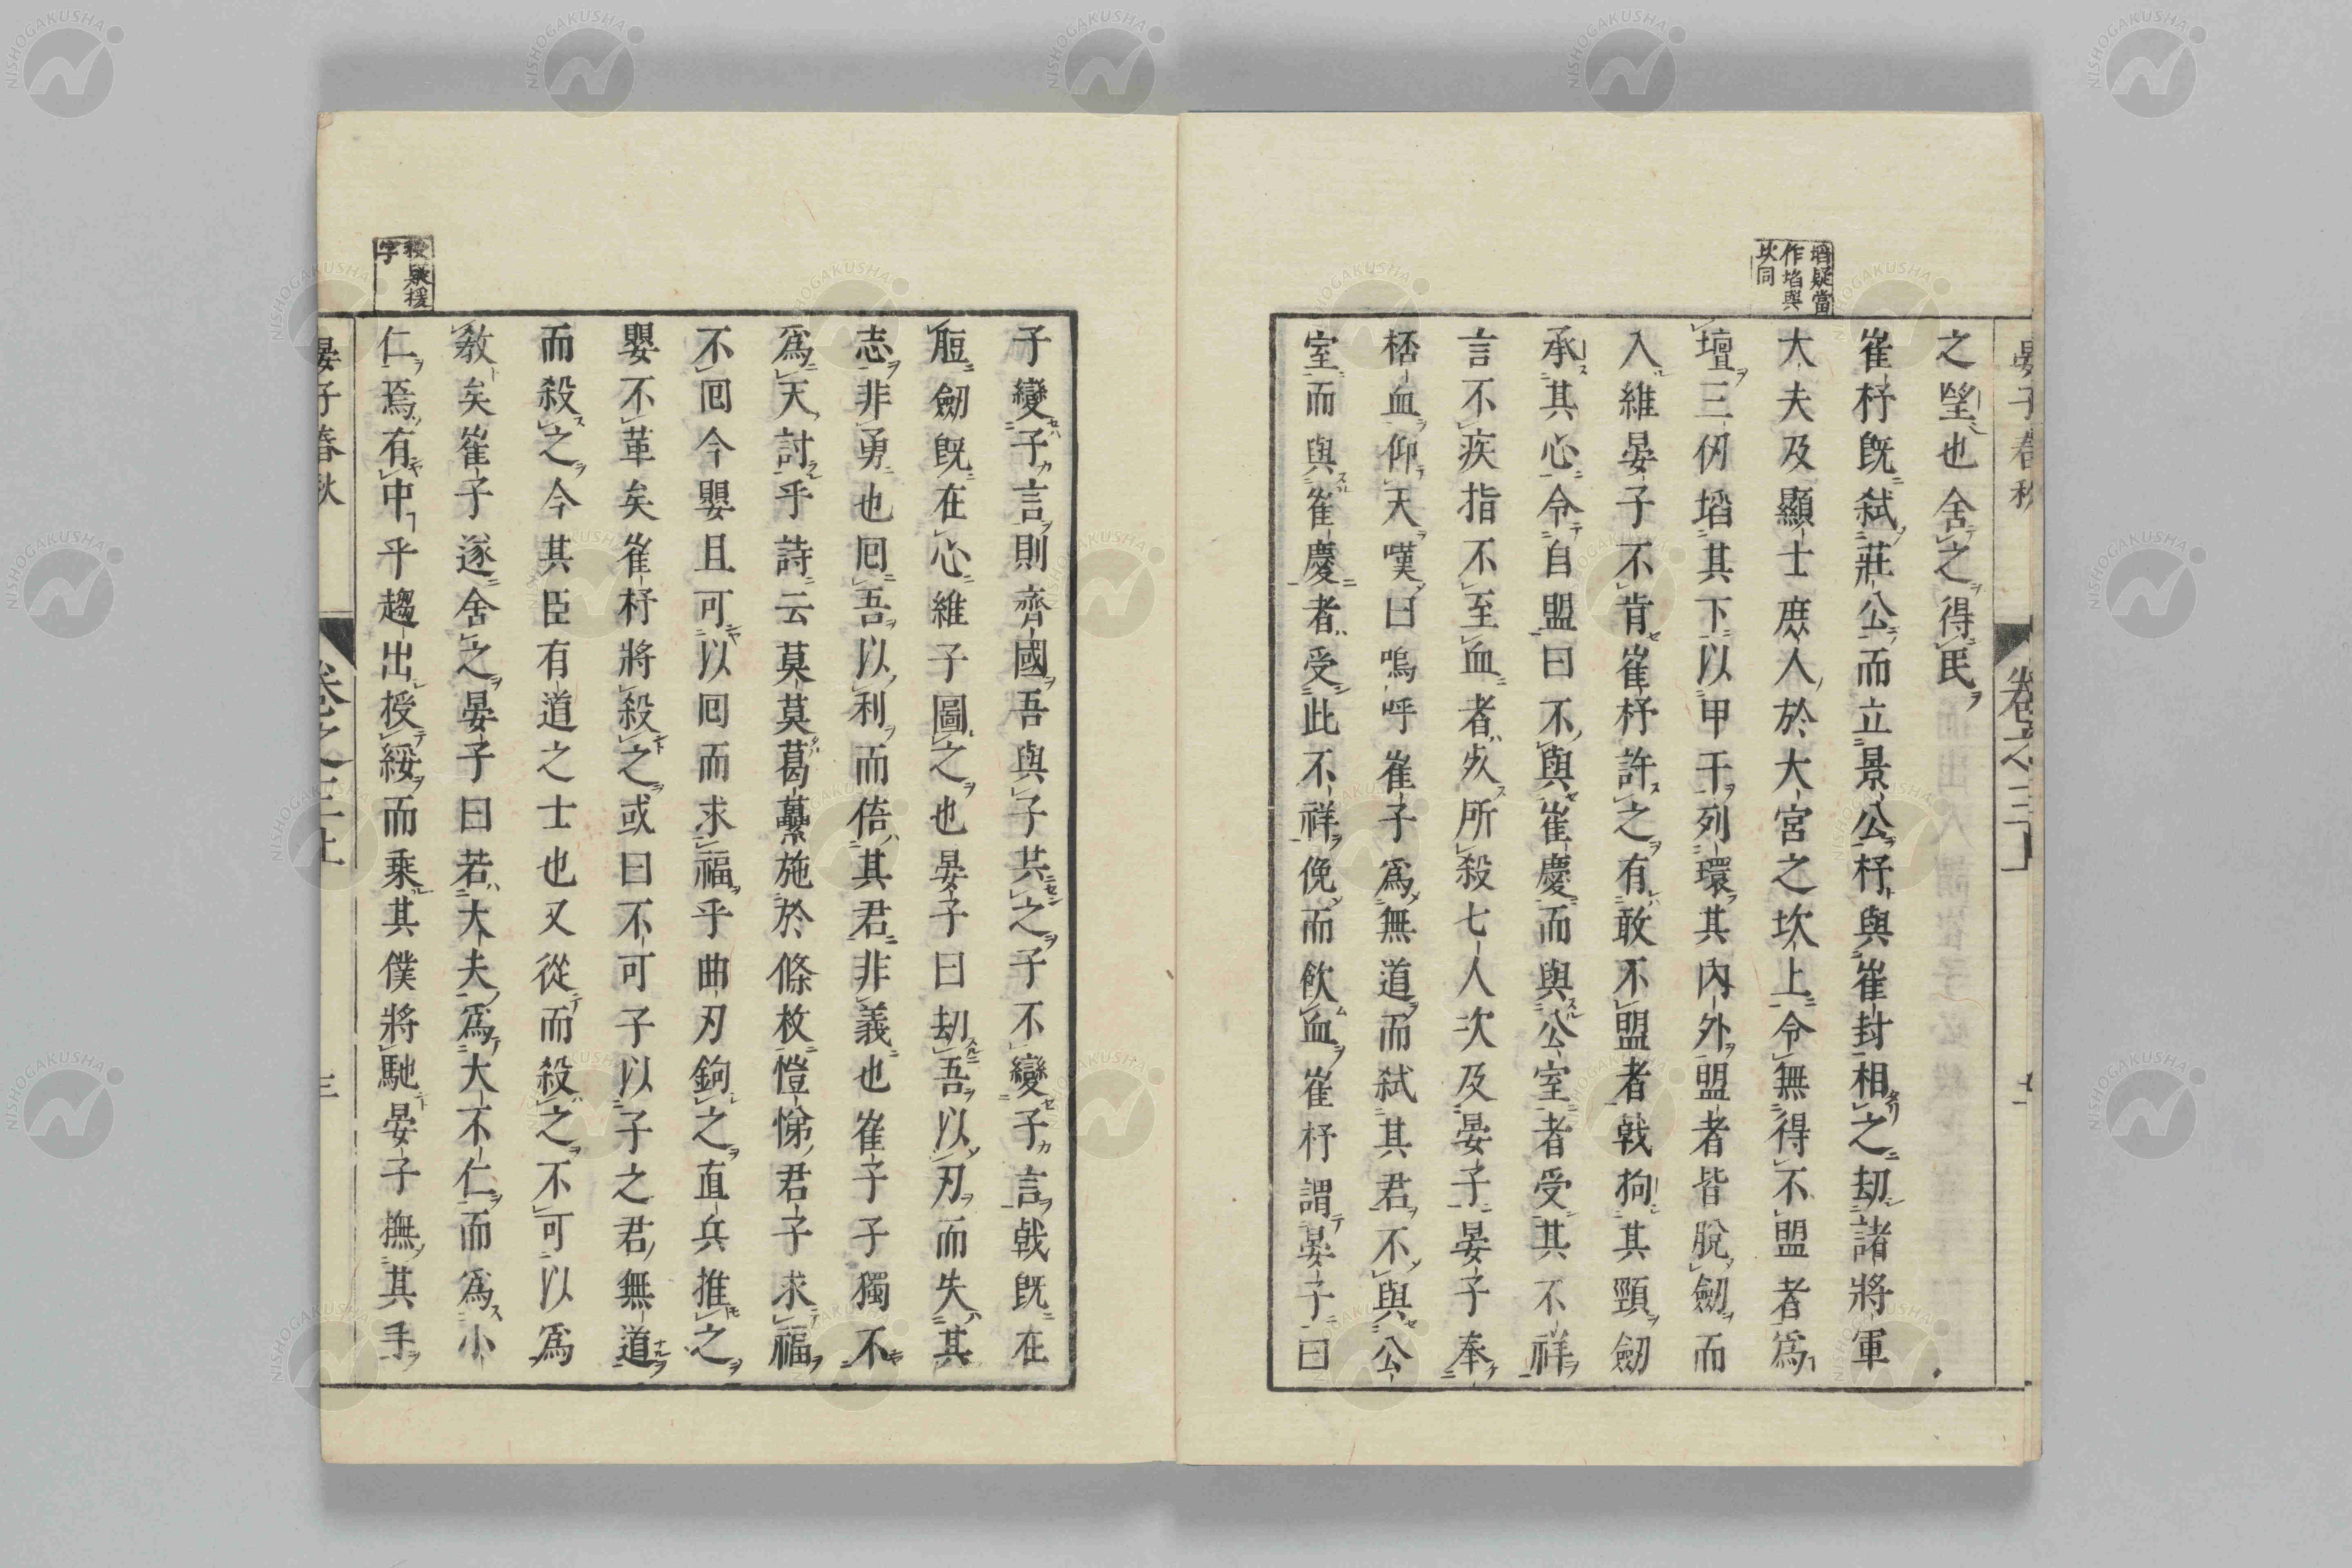 晏子春秋 卷之三
之望也舍之得民
崔杼既弑莊公而立景公杼與崔封相之劫諸將軍
大夫及顯士庶人於大宮之坎上令無得不盟者爲
壇三仞塪其下以甲干列環其內外盟者皆脫劒而
入維晏子不肯崔杼許之有敢不盟者戟拘其頸劒
承其心令自盟曰不與崔慶而與公室者受其不祥
言不疾指不至血者死所殺七人次及晏子晏子奉
桮血仰天嘆曰嗚呼崔子爲無道而弑其君不與公
室而與崔慶者受此不祥俛而飲血崔杼謂晏子曰
塪疑當
作埳與
坎同
子變子言則齊國吾與子共之子不變子言戟既在
脰劒既在心維子圖之也晏子曰劫吾以刃而失其
志非勇也囘吾以利而倍其君非義也崔子子獨不
爲天討乎詩云莫莫葛虆施於條枚愷悌君子求福
不囘今嬰且可以囘而求福乎曲刃鉤之直兵推之
嬰不革矣崔杼將殺之或曰不可子以子之君無道
而殺之今其臣有道之士也又從而殺之不可以爲
敎矣崔子遂舍之晏子曰若大夫爲大不仁而爲小
仁焉有中乎趨出授綏而乘其僕將馳晏子撫其手
授疑援
字
晏子春秋 卷之三上
NISHOGAKUSHA